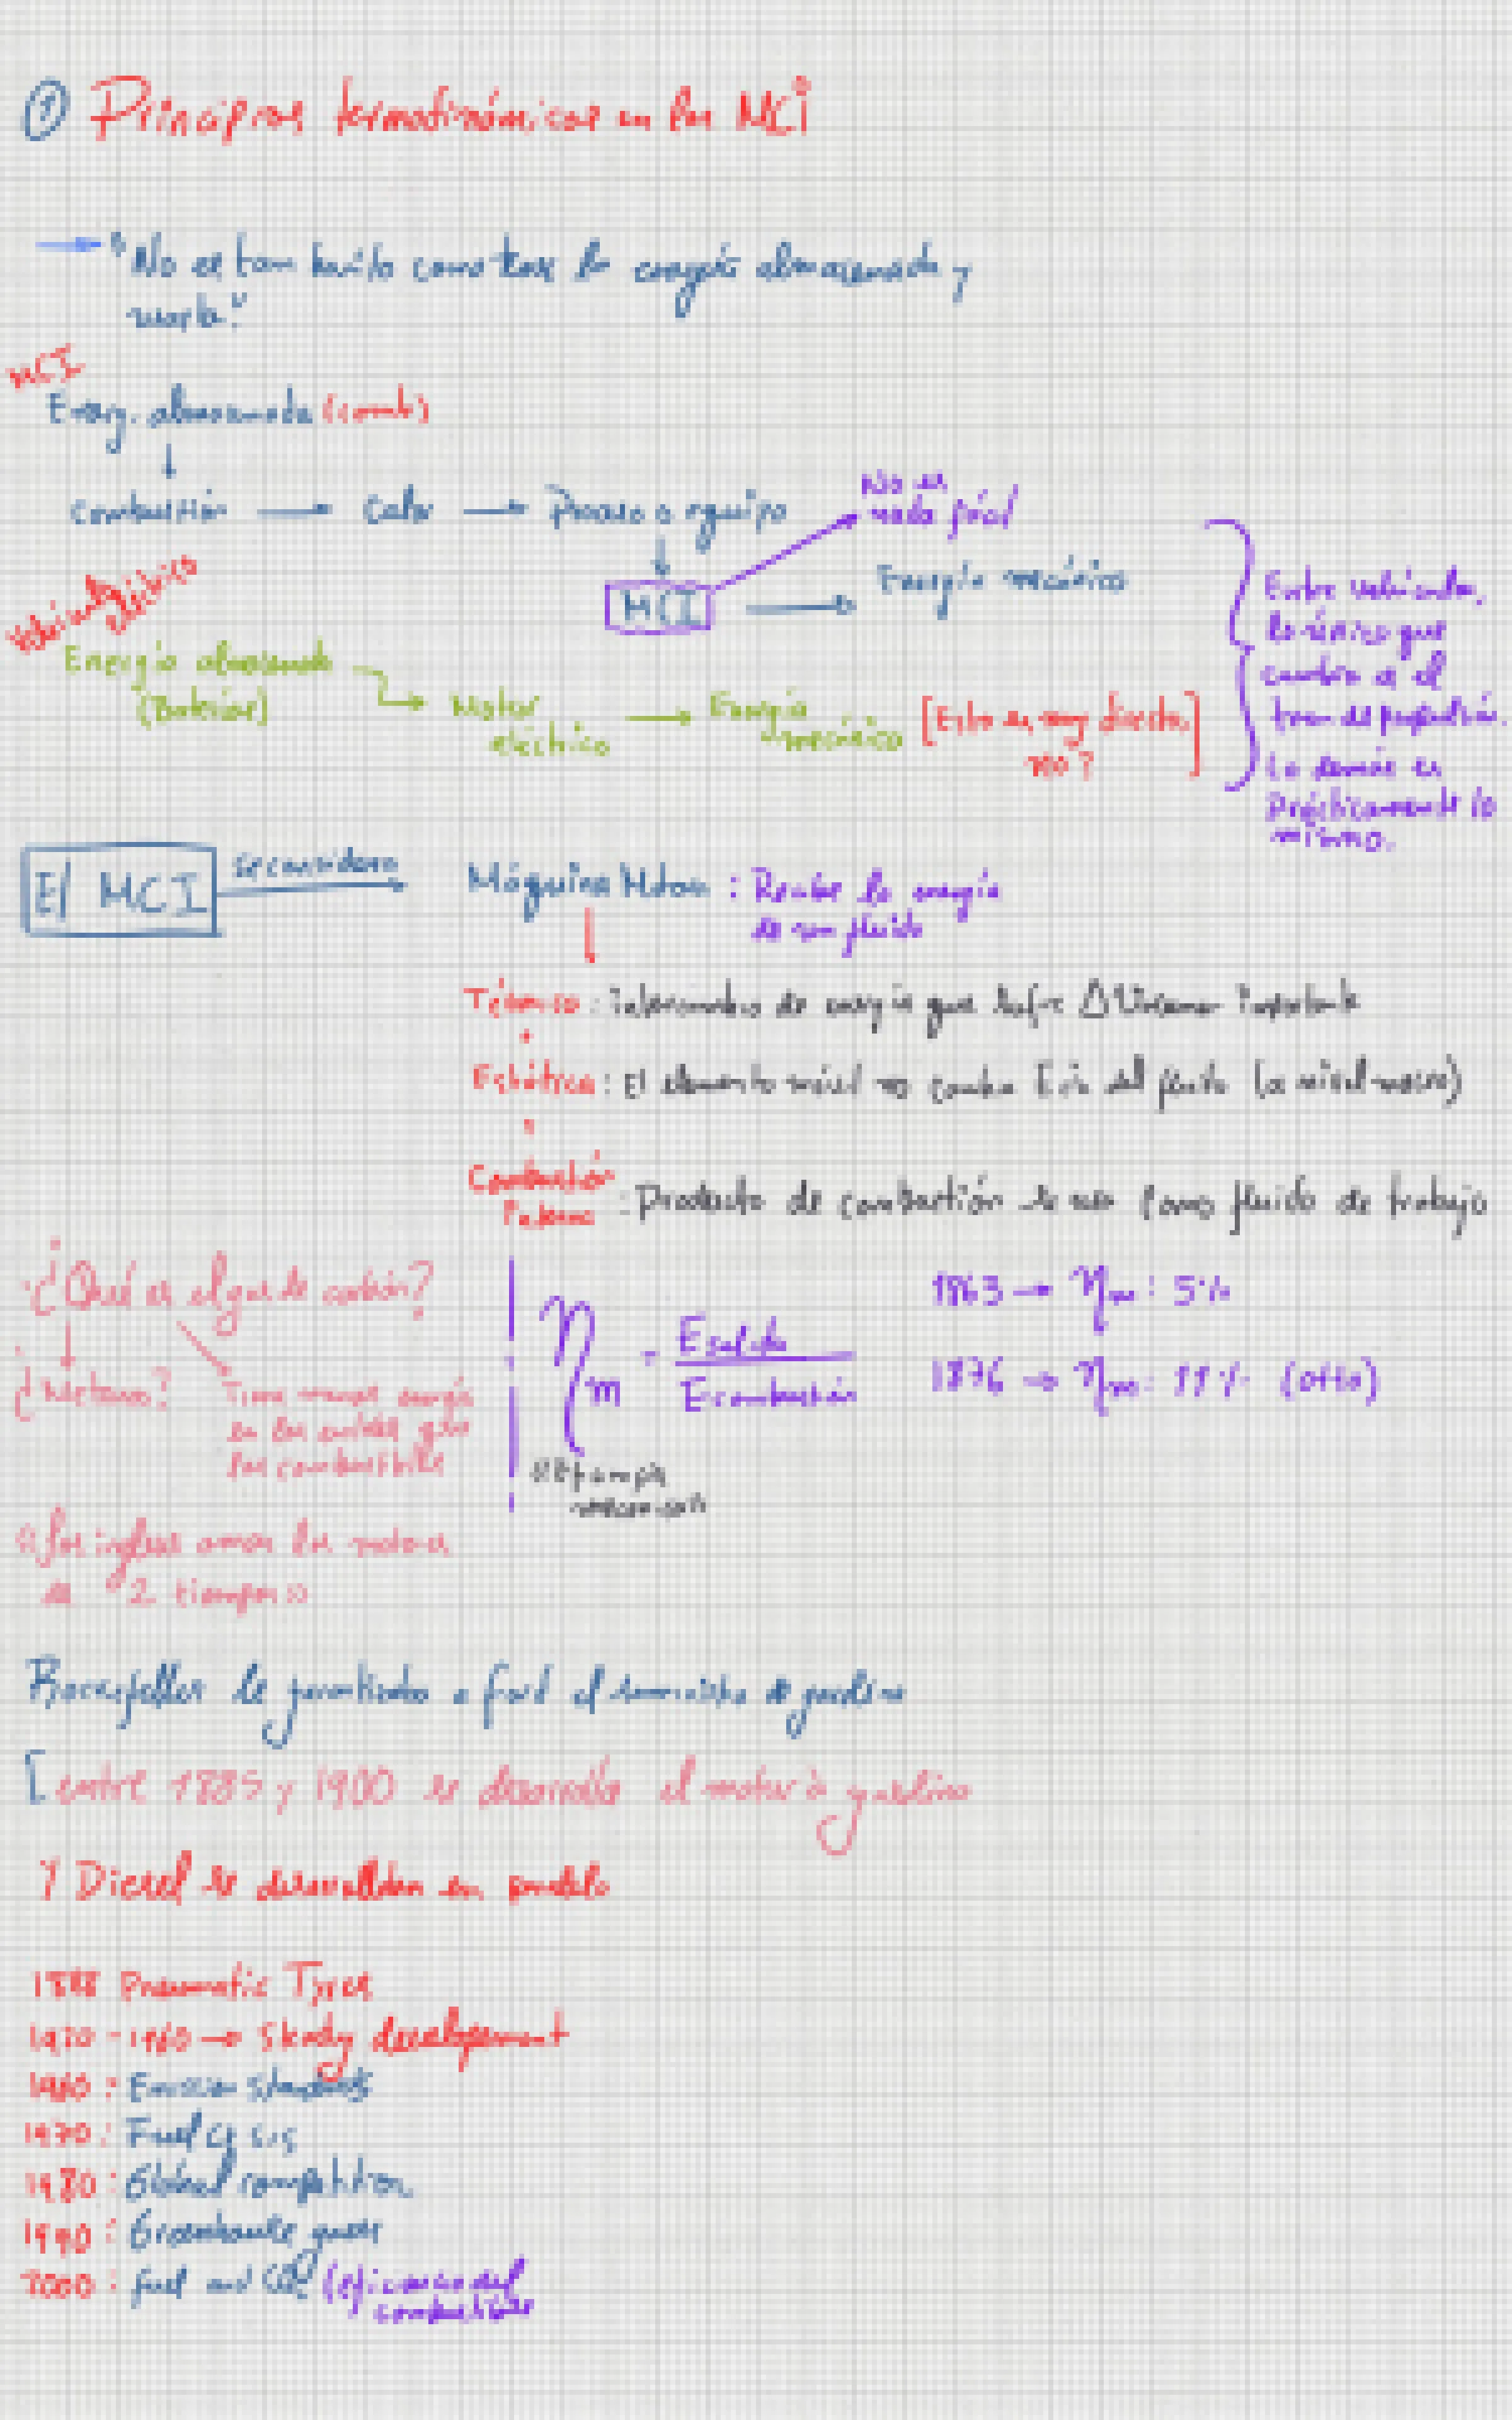 ① Principios termodinámicos en los MCI
"No es tan bonito como tener la energía almacenada y
usarla."
MCI
Energ. almacenada (comb)
Combustión → Calor → Proceso o equipo
No es
nada fácil
MCI → Energía mecánica
Vehículo eléctrico
Energía almacenada
(Baterías)
→ Motor
eléctrico
→ Energía
mecánica
[Esto es muy directo,
no?]
Entre vehículos,
lo único que
cambia es el
tren de propulsión.
Lo demás es
Prácticamente lo
mismo.
El MCI
se considera
Máquina Motora : Recibe la energía
de un fluido
Térmica : Intercambio de energía que sufre Δ Volumen Importante
Estática : El elemento móvil no cambia Ec del fluido (a nivel macro)
Combustión
Interna
: Producto de combustión se usa como fluido de trabajo
¿Qué es el gas de carbón?
¿Metano?
Tiene menos energía
en los enlaces que
los combustibles
ηm = Esalida
Ecombustión
mecánica
1863 → ηm: 5%
1876 → ηm: 11% (Otto)
Los ingleses aman los motores
de 2 tiempos
Rockefeller le garantizaba a Ford el suministro de gasolina
[entre 1885 y 1900 se desarrolla el motor a gasolina
Y Diesel se desarrollan en paralelo
1888 Pneumatic Tyres
1920-1960 → Steady development
1960 : Emission Standards
1970 : Fuel Crisis
1980 : Global competition
1990 : Greenhouse gases
2000 : Fuel and CO2 (eficiencia del
combustible